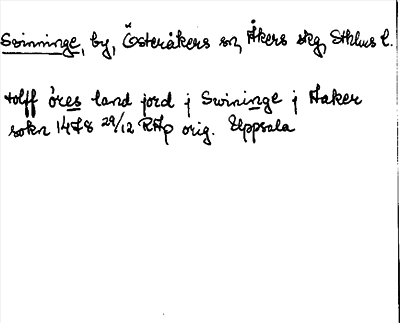 Svinninge, by, Österåkers sn, Åkers skg, Sthlms l.
tolff öres land jord j Swininge j Aaker
sokn 1478 29/12 RAp orig. Uppsala